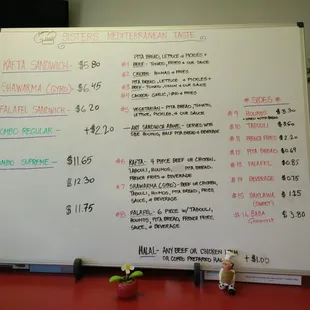 SISTERS MEDITERRANEAN TASTE
KAFTA SANDWICH - $5.80
SHAWARMA (GYRO) - $6.45
FALAFEL SANDWICH - $6.20
COMBO REGULAR - +$2.20
COMBO SUPREME - $11.65
$12.30
$11.75
PITA BREAD, LETTUCE & PICKLES +
#1 BEEF - TOMATO, FRIES & OUR SAUCE
#2 CHICKEN - HUMMUS & FRIES
PITA BREAD, LETTUCE & PICKLES +
#3 BEEF - TOMATO, & OUR SAUCE
#4 CHICKEN - GARLIC, & FRIES
#5 VEGETARIAN - PITA BREAD, TOMATO,
LETTUCE, PICKLES & OUR SAUCE
- ANY SANDWICH ABOVE - SERVED WITH
SIDE HUMMUS, HALF PITA BREAD & BEVERAGE
#6 KAFTA - 4 PIECE BEEF OR CHICKEN,
TABOULI, HUMMUS, PITA BREAD,
FRENCH FRIES & BEVERAGE
#7 SHAWARMA (GYRO) - BEEF OR CHICKEN,
TABOULI, HUMMUS, PITA BREAD, FRIES,
SAUCE, & BEVERAGE
#8 FALAFEL - 6 PIECE W/ TABOULI,
HUMMUS, PITA BREAD, FRENCH FRIES,
SAUCE, & BEVERAGE
* SIDES *
#9 HUMMUS $3.30
#10 TABOULI $5.60
#11 FRENCH FRIES $2.20
#12 PITA BREAD $0.69
#13 FALAFEL $0.85
#14 RICE $0.75
#15 BAKLAWA $1.25
(SWEET)
#16 BABA $3.80
HALAL - ANY BEEF OR CHICKEN
OR COMBO PREPARED +$1.00